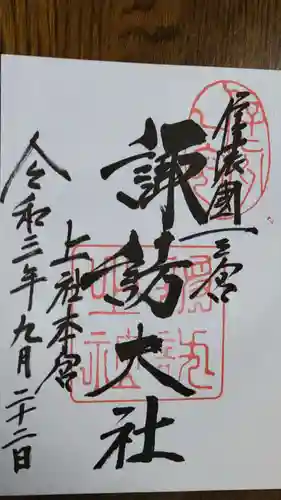 信濃國一之宮
諏訪大社
上社本宮
令和三年九月二十二日